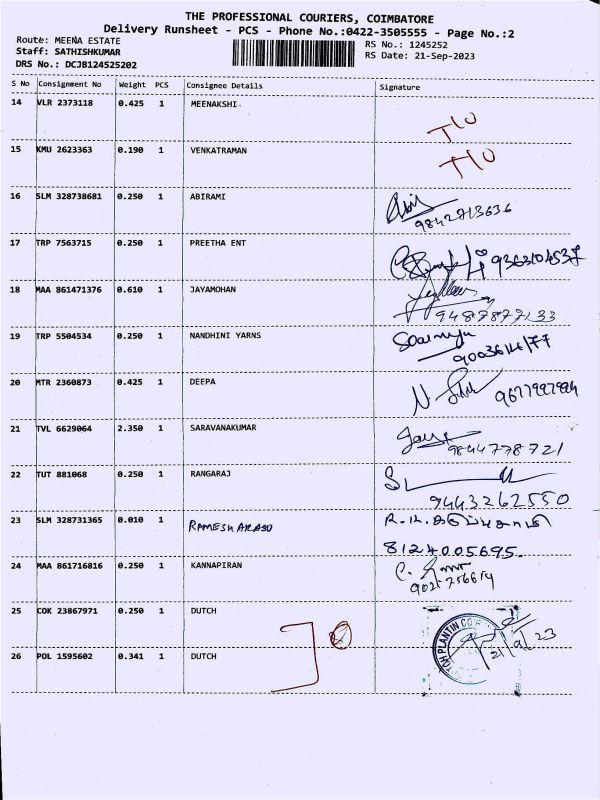 THE PROFESSIONAL COURIERS, COIMBATORE
Delivery Runsheet - PCS - Phone No.:0422-3505555 - Page No.:2
Route: MEENA ESTATE
Staff: SATHISHKUMAR
DRS No.: DCJB124525202
RS No.: 1245252
RS Date: 21-Sep-2023
S No Consignment No Weight PCS Consignee Details Signature
14 VLR 2373118 0.425 1 MEENAKSHI
15 KMU 2623363 0.190 1 VENKATRAMAN
16 SLM 328738681 0.250 1 ABIRAMI
9842713636
17 TRP 7563715 0.250 1 PREETHA ENT
9363104537
18 MAA 861471376 0.610 1 JAYAMOHAN
9487877133
19 TRP 5504534 0.250 1 NANDHINI YARNS
9003614177
20 MTR 2360873 0.425 1 DEEPA
21 TVL 6629064 2.350 1 SARAVANAKUMAR
9844778721
22 TUT 881068 0.250 1 RANGARAJ
9443262550
23 SLM 328731365 0.010 1 RAMESH ARASU
8124005695.
24 MAA 861716816 0.250 1 KANNAPIRAN
25 COK 23867971 0.250 1 DUTCH
21/9/23
26 POL 1595602 0.341 1 DUTCH